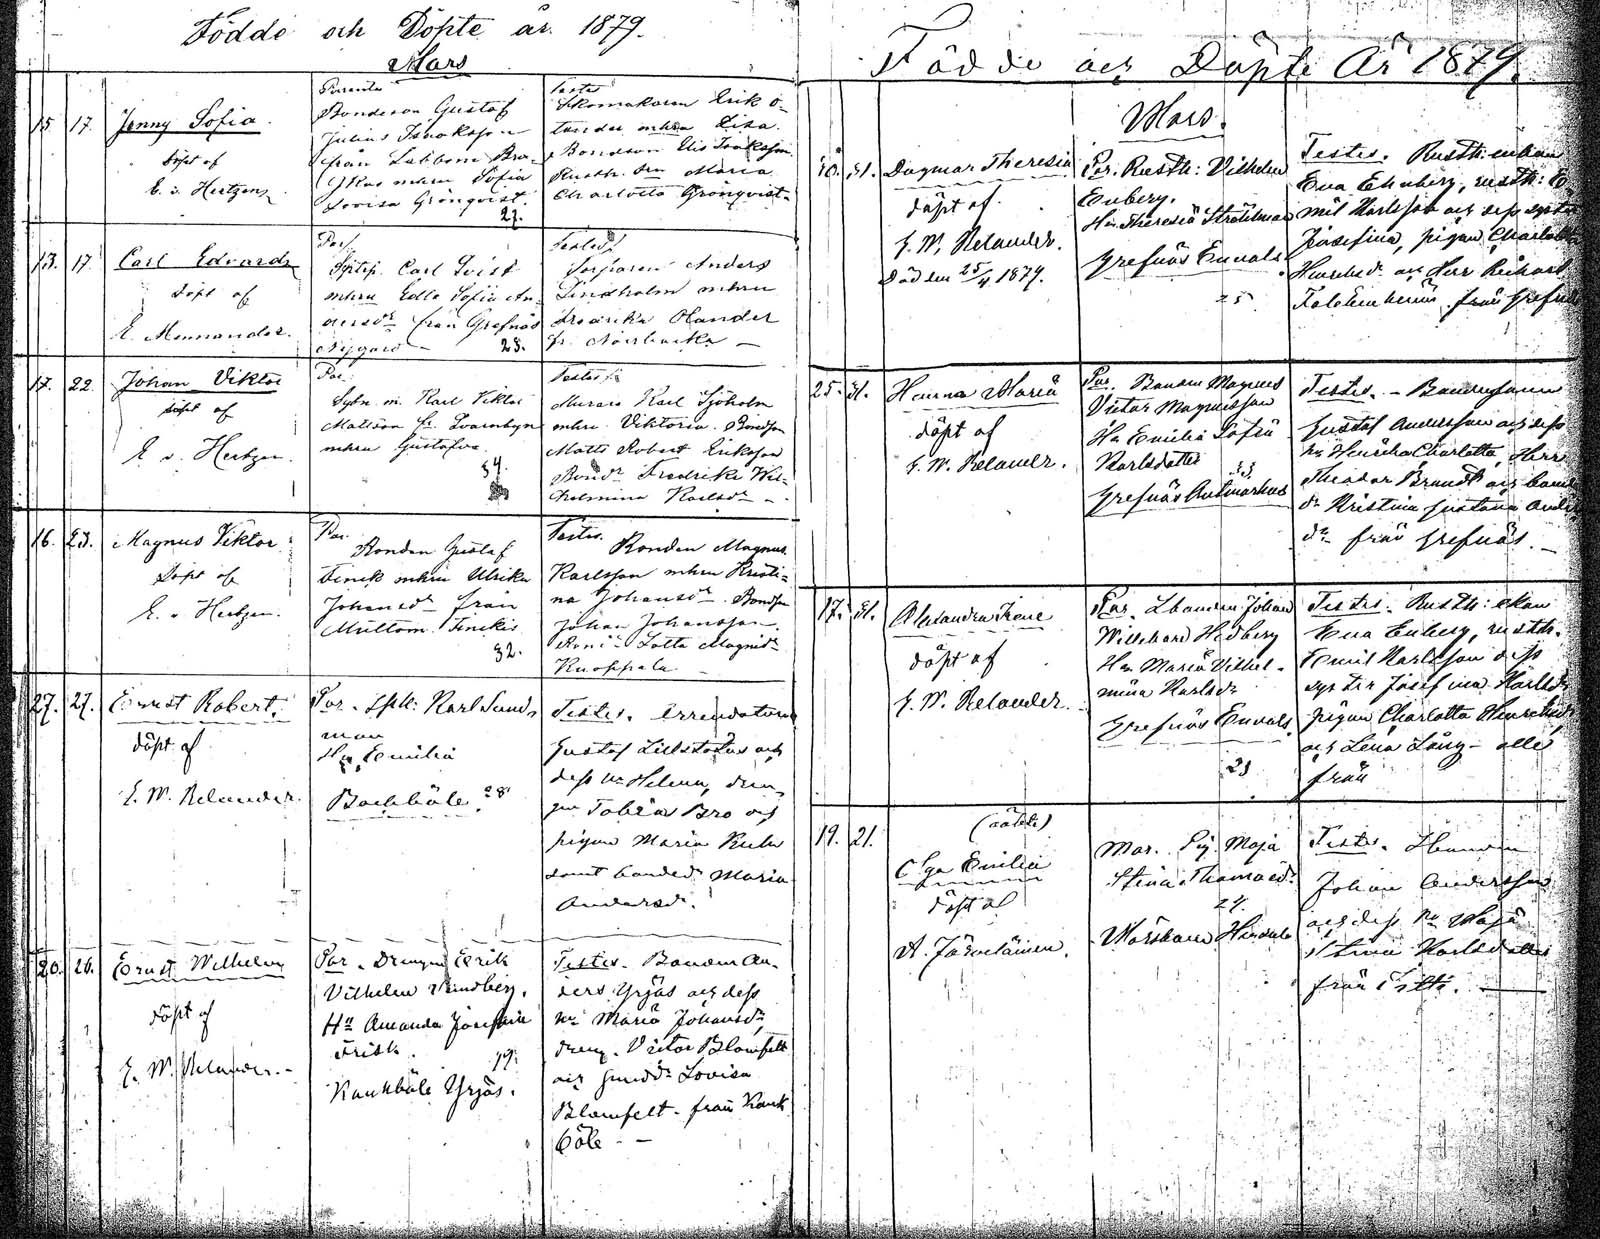 Födde och Döpte år 1879.
Mars
15 17. Jenny Sofia.
döpt af
E. v. Hertzen
Parentes
Bondeson Gustaf
Julius Isaksson
från Labbom Bro-
mhru Sofia
Lovisa Grönqvist.
27.
Testes
Skomakaren Erik Ö-
lander mhru Lisa.
Bondson Elis Isaksson
Rusth. dr Maria
Charlotta Grönqvist.
13. 17 Carl Edvard
döpt af
E. Mennander.
Par.
Carl Qvist
mhru Edla Sofia An-
dersdr från Grefnäs
Nygård
28.
Testes
Torparen Anders
Lindholm mhru
Fredrika Olander
fr. Norrbacka
17. 22. Johan Viktor
döpt af
E. v. Hertzen.
Par.
Sytn. m. Karl Viktor
Mattson fr. Qvarnbyn
mhru Gustafva
34.
Testes
Murare Karl Sjöholm
mhru Viktoria. Bondson
Matts Robert Eriksson
Bonddr Fredrika Wil-
helmina Karlsdr
16. 23. Magnus Viktor
Döpt af
E. v Hertzen.
Par.
Bonden Gustaf
Finck mhru Ulrika
Johansdr från
Mulltom Finckis
32.
Testes.
Bonden Magnus
Karlsson mhru Kristi-
na Johansdr. Bondson
Johan Johansson.
Lotta Magnidr
Knoppala
27. 27. Ernst Robert.
döpt af
E. W. Relander.
Par. Karl Sund-
man
Hu Emilia
Backböle 28
Testes. Arrendatorn
Gustaf Lillstolus och
dess hu Helena, dren-
gen Tobias Bro och
pigan Maria
samt bondedr Maria
Andersdr.
20. 26. Ernst Wilhelm
döpt af
E. W. Relander.
Par. Drengen Erik
Vilhelm Lindberg.
Hu Amanda Josefina
Frisk.
19.
Kankböle Yrjäs.
Testes. Bonden An-
ders Yrjäs och dess
hu Maria Johansdr,
dreng. Victor Blomfelt
och Lovisa
Blomfelt från Kank
böle
Födde och Döpte År 1879.
Mars.
10. 31. Dagmar Theresia
döpt af
E. W. Relander.
Död den 25/4 1879.
Par. Rusth: Vilhelm
Enberg.
Hu Theresia Stråhlman
Grefnäs Ennals
25
Testes. Rusth: enkan
Eva Ehnberg, rusth: E-
mil Karlsson och dess syster
Josefina, pigan Charlotta
Henriksdr och Herr Rickard
från Grefnäs
25. 31. Hanna Maria
döpt af
E. W. Relander.
Par. Bonden Magnus
Victor Magnusson
Hu Emilia Sofia
Karlsdotter
33
Grefnäs Antmärkus
Testes. Bondesonen
Gustaf Andersson och dess
hu Henrika Charlotta, Herr
Theodor Brandt och bonde
dr Kristina Gustava Anders
dr från Grefnäs.
17. 31. Alexandra Irene
döpt af
E. W. Relander.
Par. Johan
Willehard Hedberg
Hu Maria Vilhel-
mina Karlsdr
Grefnäs Ennals.
23
Testes. Rusth: ekan
Eva Enberg, rusth.
Emil Karlsson dess
syster Josefina Karlsdr
pigan Charlotta Henriksdr
och Lena Lång - alla
från
19. 21. (oäkta)
Olga Emilia
döpt af
A. Järvelainen.
Mor. Pig. Maja
Stina Thomasdr
24.
Testes.
Johan Andersson
och dess hu Maja
Stina Karlsdotter
från